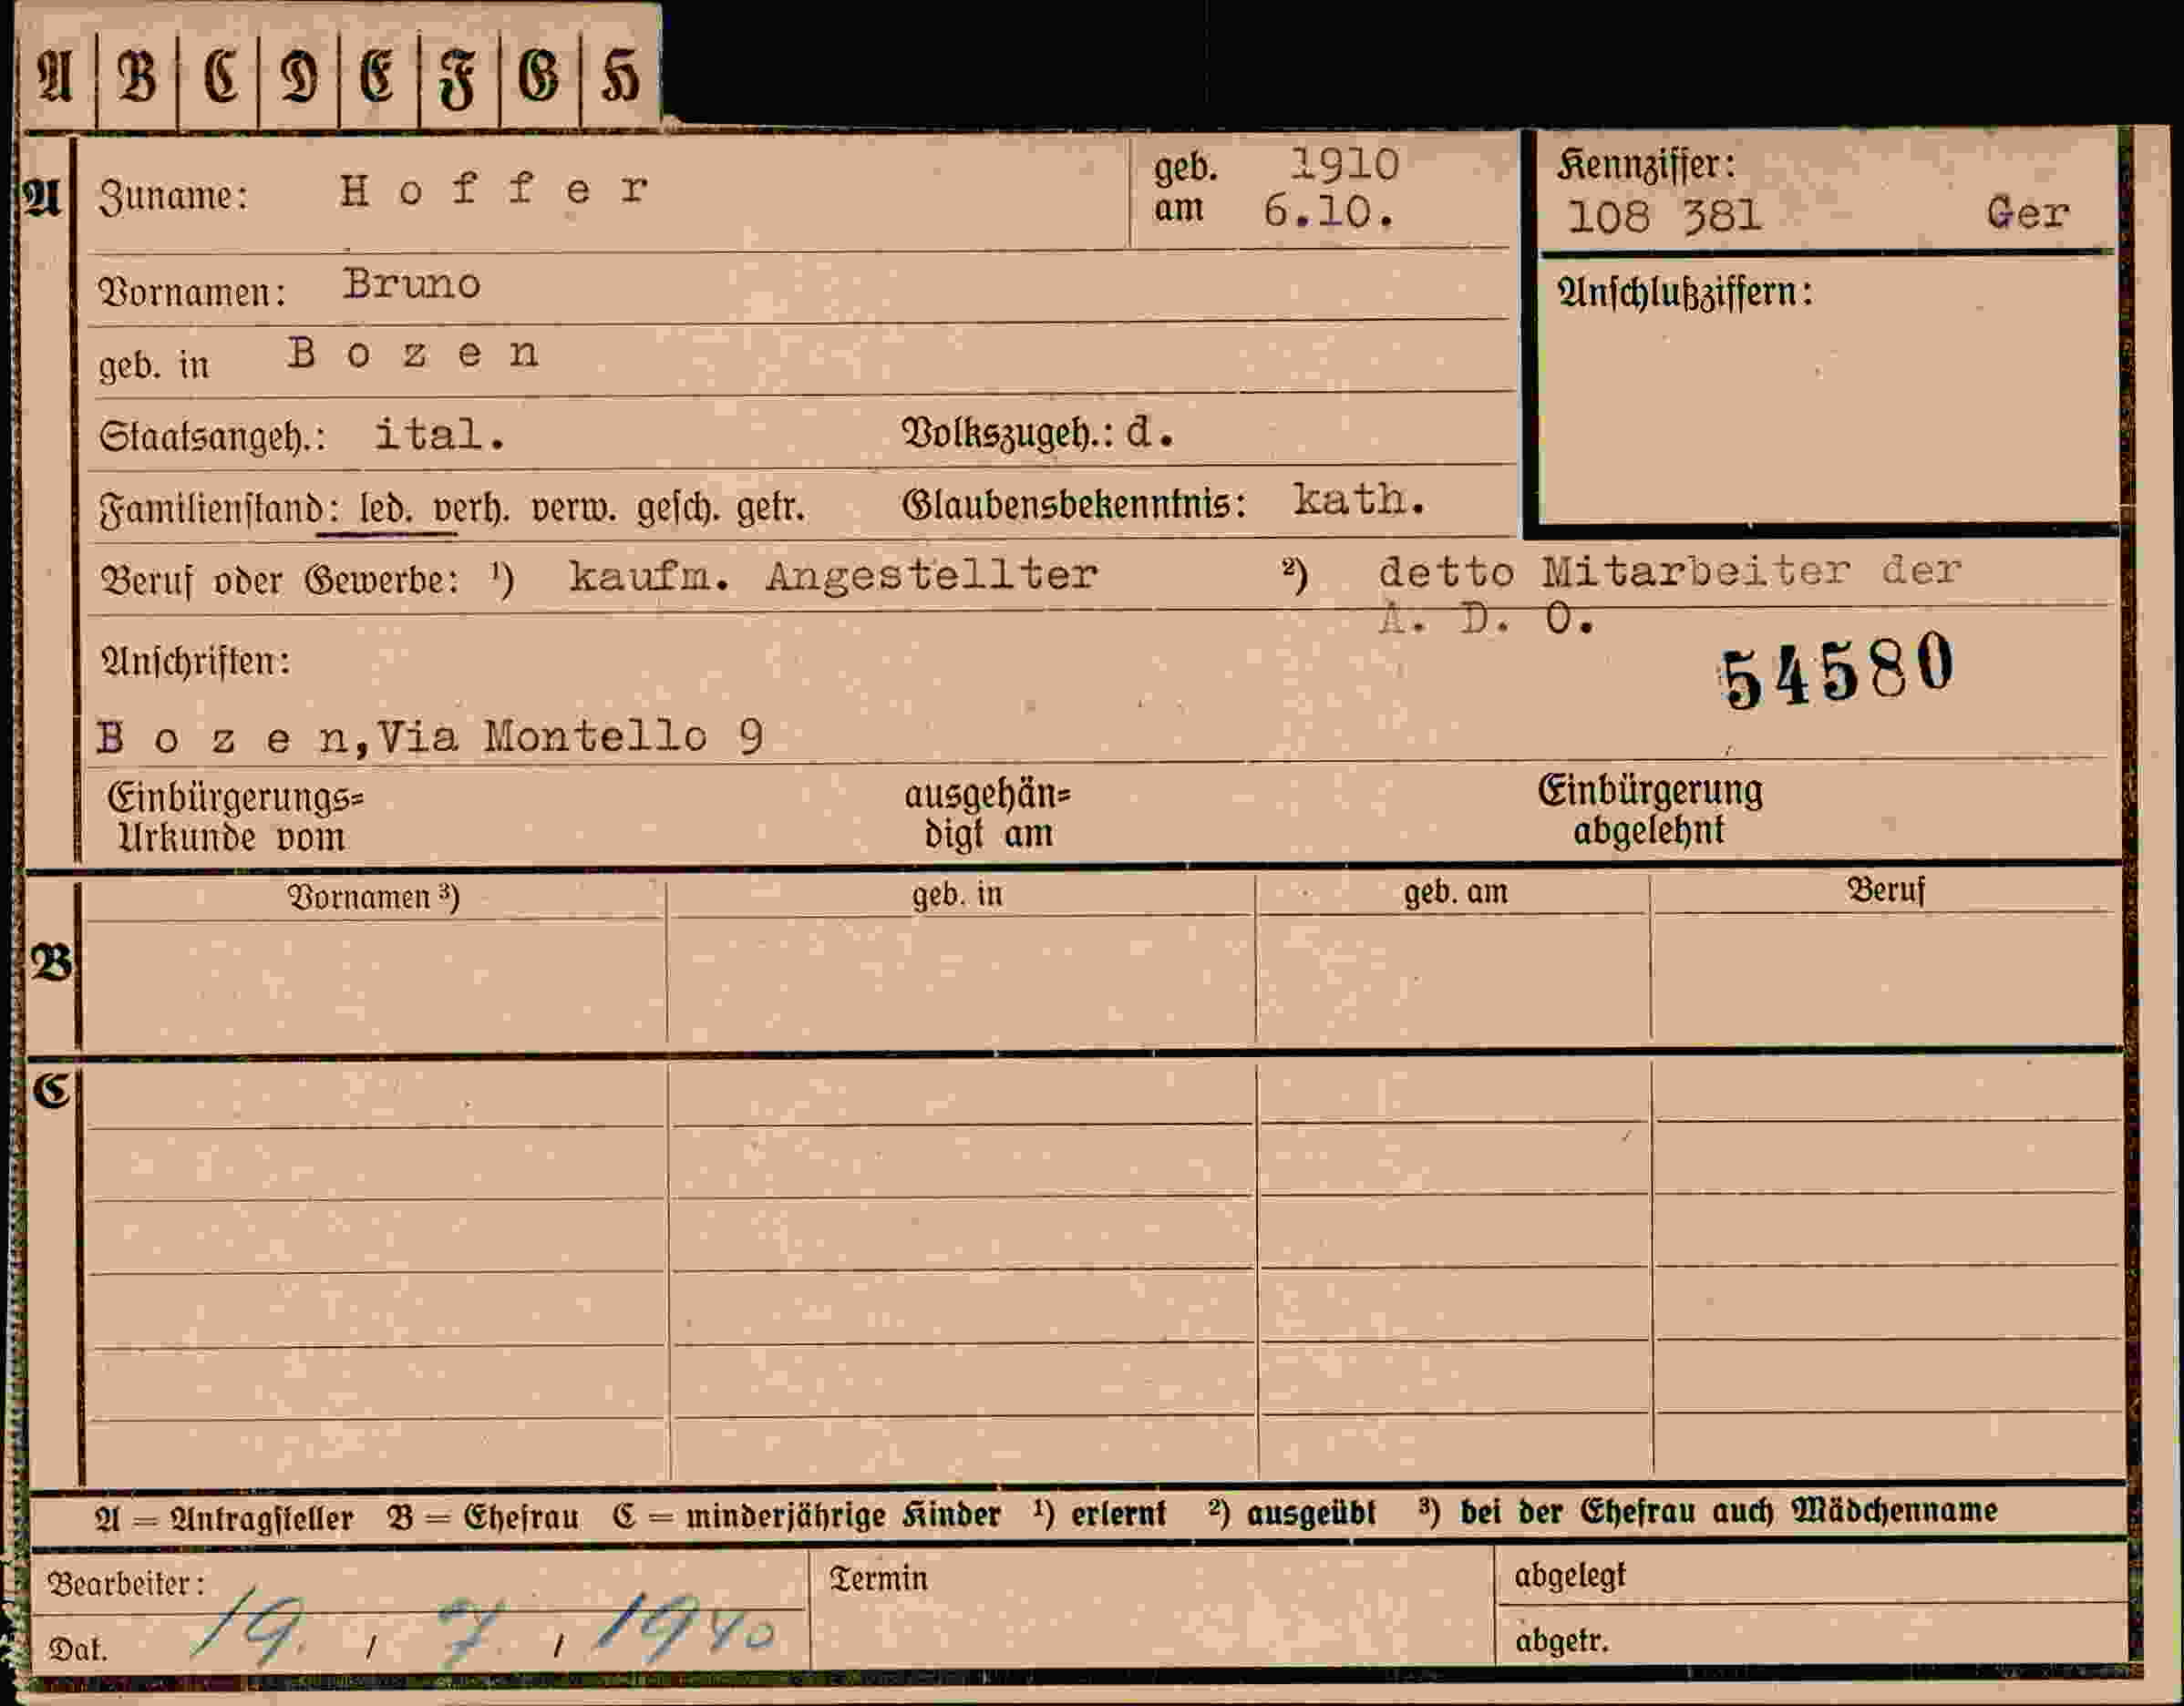 A B C D E F G H
A Zuname: Hoffer geb. am 1910 6.10. Kennziffer: 108 381 Ger
Vornamen: Bruno Anschlußziffern:
geb. in Bozen
Staatsangeh.: ital. Volkszugeh.: d.
Familienstand: led. verh. verw. gesch. getr. Glaubensbekenntnis: kath.
Beruf oder Gewerbe: ¹) kaufm. Angestellter ²) detto Mitarbeiter der
A. D. O.
Anschriften: 54580
Bozen, Via Montello 9
Einbürgerungs= ausgehän= Einbürgerung
Urkunde vom digt am abgelehnt
Vornamen ³) geb. in geb. am Beruf
B
C
A = Antragsteller B = Ehefrau C = minderjährige Kinder ¹) erlernt ²) ausgeübt ³) bei der Ehefrau auch Mädchenname
Bearbeiter: Termin abgelegt
Dat. 19. / 7. / 1940 abgetr.